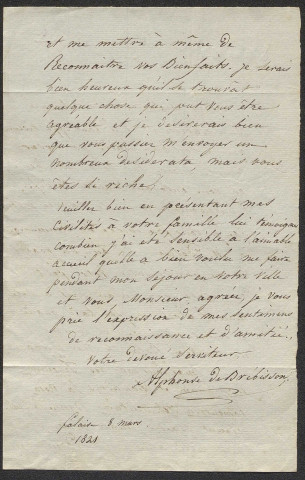 et me mettre à même de
Reconnaitre vos Bienfaits. je serais
bien heureux qu'il se trouvat
quelque chose qui put vous être
agréable et je desirerais bien
que vous pussiez m'envoyer un
nombreux desiderata mais vous
etes si riche!
Veuillez bien en présentant mes
Civilités à votre famille lui témoigner
combien j'ai eté sensible à l'aimable
accueil qu'elle a bien voulu me faire
pendant mon séjour en votre ville
et vous, Monsieur, agréez je vous
prie l'expression de mes sentimens
de reconnaissance et d'amitié.
Votre devoué serviteur
Alphonse de Brébisson
falaise 8 mars
1821